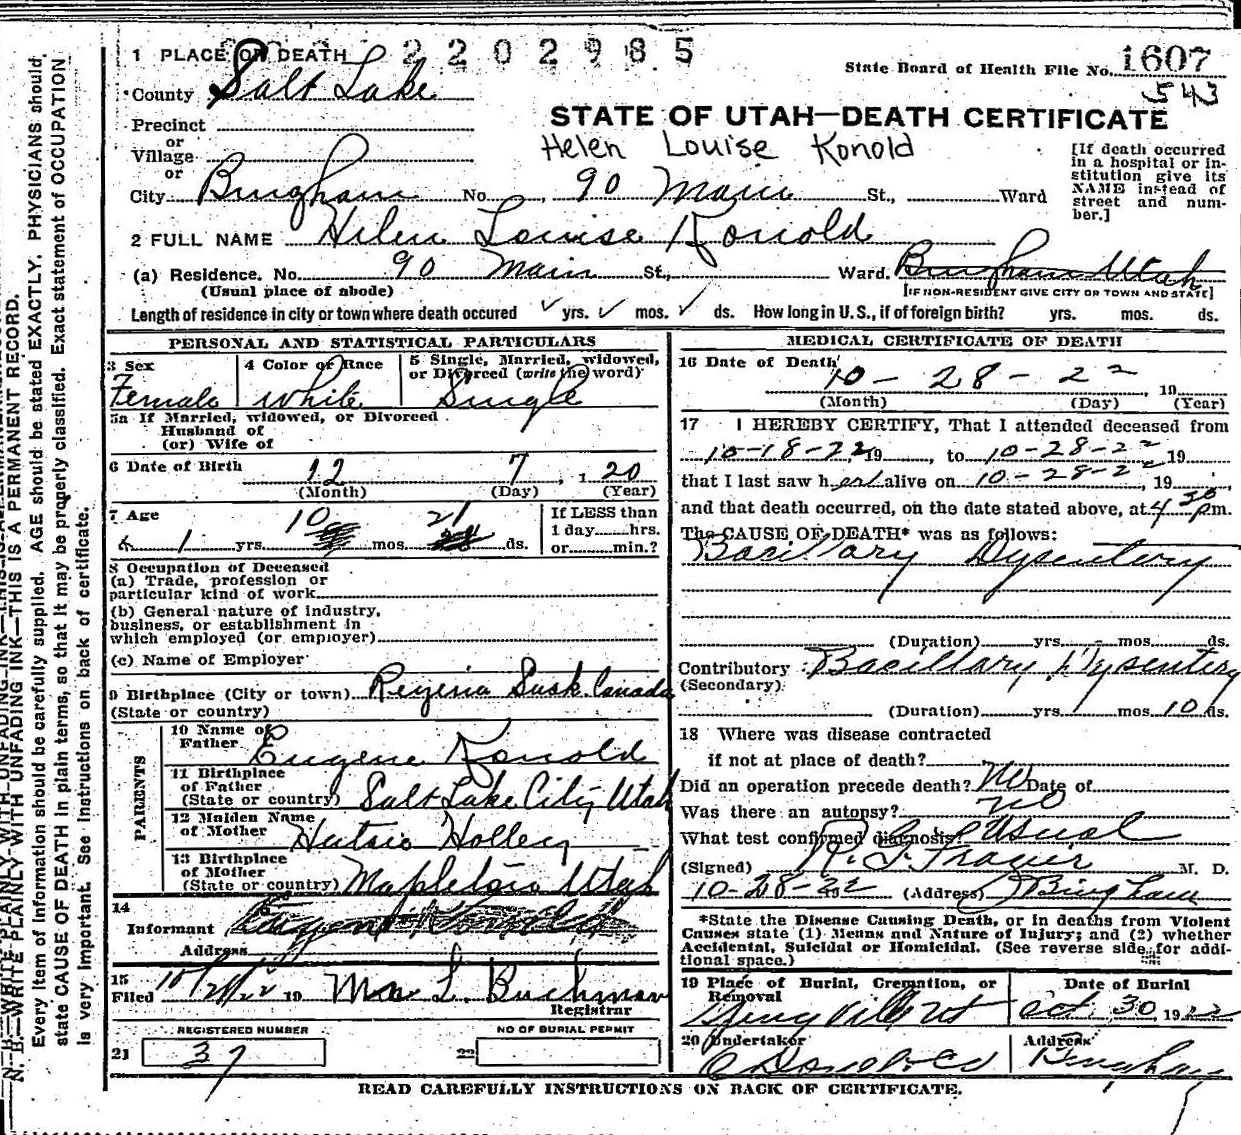 1 PLACE OF DEATH 2202985
State Board of Health File No. 1607
543
County Salt Lake
STATE OF UTAH—DEATH CERTIFICATE
Precinct
or
Village
or
Helen Louise Konold
[If death occurred in a hospital or institution give its NAME instead of street and number.]
City Bingham No. 90 Main St., Ward
2 FULL NAME Helen Louise Konold
(a) Residence. No. 90 Main St., Ward. Bingham Utah
(Usual place of abode) [IF NON-RESIDENT GIVE CITY OR TOWN AND STATE]
Length of residence in city or town where death occured yrs. mos. ds. How long in U. S., if of foreign birth? yrs. mos. ds.
PERSONAL AND STATISTICAL PARTICULARS
3 Sex
Female
4 Color or Race
White
5 Single, Married, widowed, or Divorced (write the word)
Single
5a If Married, widowed, or Divorced
Husband of
(or) Wife of
6 Date of Birth 12 7, 1 20
(Month) (Day) (Year)
7 Age 10 21
1 yrs. mos. ds.
If LESS than
1 day hrs.
or min.?
8 Occupation of Deceased
(a) Trade, profession or
particular kind of work
(b) General nature of industry,
business, or establishment in
which employed (or employer)
(c) Name of Employer
9 Birthplace (City or town) Regina Sask Canada
(State or country)
PARENTS
10 Name of
Father Eugene Konold
11 Birthplace
of Father
(State or country) Salt Lake City Utah
12 Maiden Name
of Mother
13 Birthplace
of Mother
(State or country) Mapleton Utah
14
Informant Eugene Konold
Address
15
Filed 19 L. Buchman
Registrar
REGISTERED NUMBER NO OF BURIAL PERMIT
21 37 22
MEDICAL CERTIFICATE OF DEATH
16 Date of Death
10-28-22, 19
(Month) (Day) (Year)
17 I HEREBY CERTIFY, That I attended deceased from
10-18-22, 19, to 10-28-22 19
that I last saw her alive on 10-28-22, 19
and that death occurred, on the date stated above, at 4 30 pm.
The CAUSE OF DEATH* was as follows:
Bacillary Dysentery
(Duration) yrs. mos. ds.
Contributory Bacillary Dysentery
(Secondary)
(Duration) yrs. mos. 10 ds.
18 Where was disease contracted
if not at place of death?
Did an operation precede death? No Date of
Was there an autopsy? no
What test confirmed diagnosis? Usual
(Signed) M. D.
10-28-22 (Address) Bingham
*State the Disease Causing Death, or in deaths from Violent
Causes state (1) Means and Nature of Injury; and (2) whether
Accidental, Suicidal or Homicidal. (See reverse side for addi-
tional space.)
19 Place of Burial, Cremation, or
Removal
Springville Ut
Date of Burial
Oct 30 1922
20 Undertaker
O'Donnell & Co
Address
Bingham
READ CAREFULLY INSTRUCTIONS ON BACK OF CERTIFICATE.
N. B.—WRITE PLAINLY WITH UNFADING INK—THIS IS A PERMANENT RECORD.
Every item of information should be carefully supplied. AGE should be stated EXACTLY. PHYSICIANS should
state CAUSE OF DEATH in plain terms, so that it may be properly classified. Exact statement of OCCUPATION
is very important. See instructions on back of certificate.